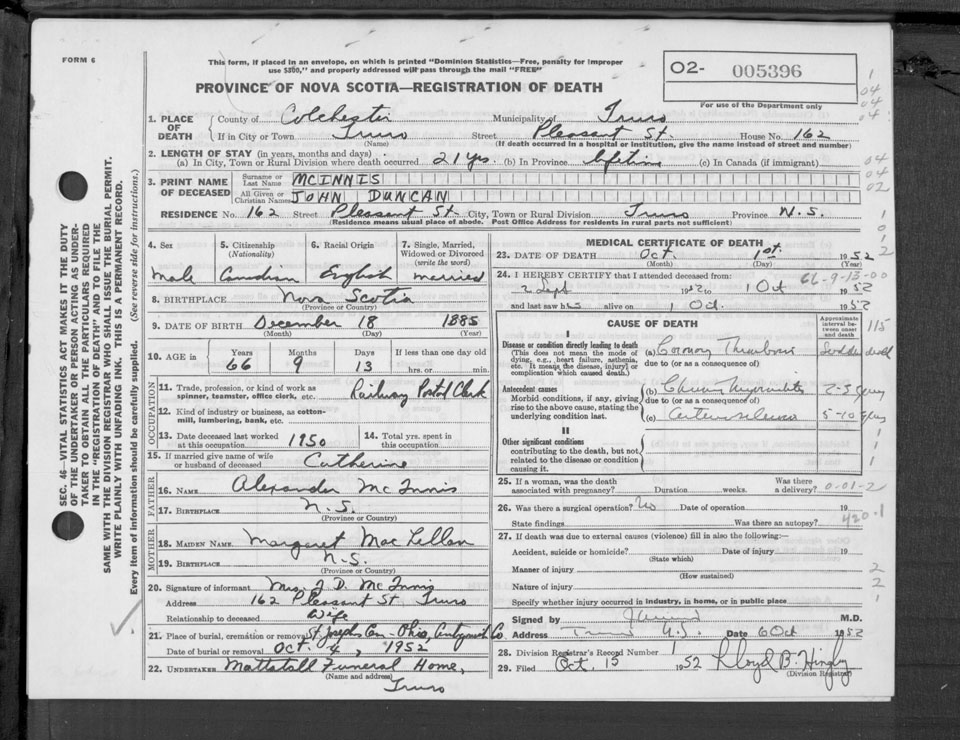 FORM 6
This form, if placed in an envelope, on which is printed "Dominion Statistics—Free, penalty for improper
use $300," and properly addressed will pass through the mail "FREE"
O2- 005396
PROVINCE OF NOVA SCOTIA—REGISTRATION OF DEATH
For use of the Department only
1. PLACE OF DEATH
County of Colchester Municipality of Truro
If in City or Town Truro Street Pleasant St. House No. 162
(Name) (If death occurred in a hospital or institution, give the name instead of street and number)
2. LENGTH OF STAY (in years, months and days)
(a) In City, Town or Rural Division where death occurred 21 yrs. (b) In Province lifetime (c) In Canada (if immigrant)
3. PRINT NAME OF DECEASED
Surname or Last Name MCINNIS
All Given or Christian Names JOHN DUNCAN
RESIDENCE No. 162 Street Pleasant St. City, Town or Rural Division Truro Province N.S.
(Residence means usual place of abode. Post Office Address for residents in rural parts not sufficient)
4. Sex 5. Citizenship (Nationality) 6. Racial Origin 7. Single, Married, Widowed or Divorced (write the word)
Male Canadian English married
8. BIRTHPLACE Nova Scotia
(Province or Country)
9. DATE OF BIRTH December 18 1885
(Month) (Day) (Year)
10. AGE in Years Months Days If less than one day old
66 9 13 hrs. or min.
OCCUPATION
11. Trade, profession, or kind of work as spinner, teamster, office clerk, etc. Railway Postal Clerk
12. Kind of industry or business, as cotton-mill, lumbering, bank, etc.
13. Date deceased last worked at this occupation 1950 14. Total yrs. spent in this occupation
15. If married give name of wife or husband of deceased Catherine
FATHER
16. NAME Alexander McInnis
17. BIRTHPLACE N.S.
(Province or Country)
MOTHER
18. MAIDEN NAME Margaret MacLellan
19. BIRTHPLACE N.S.
(Province or Country)
20. Signature of informant Mrs. J. D. McInnis
Address 162 Pleasant St. Truro
Relationship to deceased Wife
21. Place of burial, cremation or removal St Josephs Cem - Ohio, Antigonish Co.
Date of burial or removal Oct. 4, 1952
22. UNDERTAKER Mattatall Funeral Home,
(Name and address)
Truro
MEDICAL CERTIFICATE OF DEATH
23. DATE OF DEATH Oct. 1st. 1952
(Month) (Day) (Year)
24. I HEREBY CERTIFY that I attended deceased from: 66-9-13-00
2 Sept 1952 to 1 Oct 1952
and last saw his alive on 1 Oct. 1952
CAUSE OF DEATH Approximate interval between onset and death
I
Disease or condition directly leading to death
(This does not mean the mode of dying, e.g., heart failure, asthenia, etc. It means the disease, injury, or complication which caused death.)
(a) Coronary Thrombosis Sudden death
due to (or as a consequence of)
Antecedent causes
Morbid conditions, if any, giving rise to the above cause, stating the underlying condition last.
(b) Chronic Myocarditis 2-3 years
due to (or as a consequence of)
(c) Arteriosclerosis 5-10 years
II
Other significant conditions
contributing to the death, but not related to the disease or condition causing it.
25. If a woman, was the death associated with pregnancy? Duration weeks. Was there a delivery? 0-01-2
26. Was there a surgical operation? No Date of operation 19
State findings Was there an autopsy? 420.1
27. If death was due to external causes (violence) fill in also the following:—
Accident, suicide or homicide? Date of injury 19
(State which)
Manner of injury
(How sustained)
Nature of injury
Specify whether injury occurred in industry, in home, or in public place
Signed by M.D.
Address Truro N.S. Date 6 Oct 1952
28. Division Registrar's Record Number 1
29. Filed Oct. 15 1952 Lloyd B. Hingley
(Division Registrar)
SEC. 46 VITAL STATISTICS ACT MAKES IT THE DUTY
OF THE UNDERTAKER OR PERSON ACTING AS UNDER-
TAKER TO OBTAIN ALL THE PARTICULARS REQUIRED
IN THE "REGISTRATION OF DEATH" AND TO FILE THE
SAME WITH THE DIVISION REGISTRAR WHO SHALL ISSUE THE BURIAL PERMIT.
WRITE PLAINLY WITH UNFADING INK. THIS IS A PERMANENT RECORD.
Every item of information should be carefully supplied. (See reverse side for instructions.)